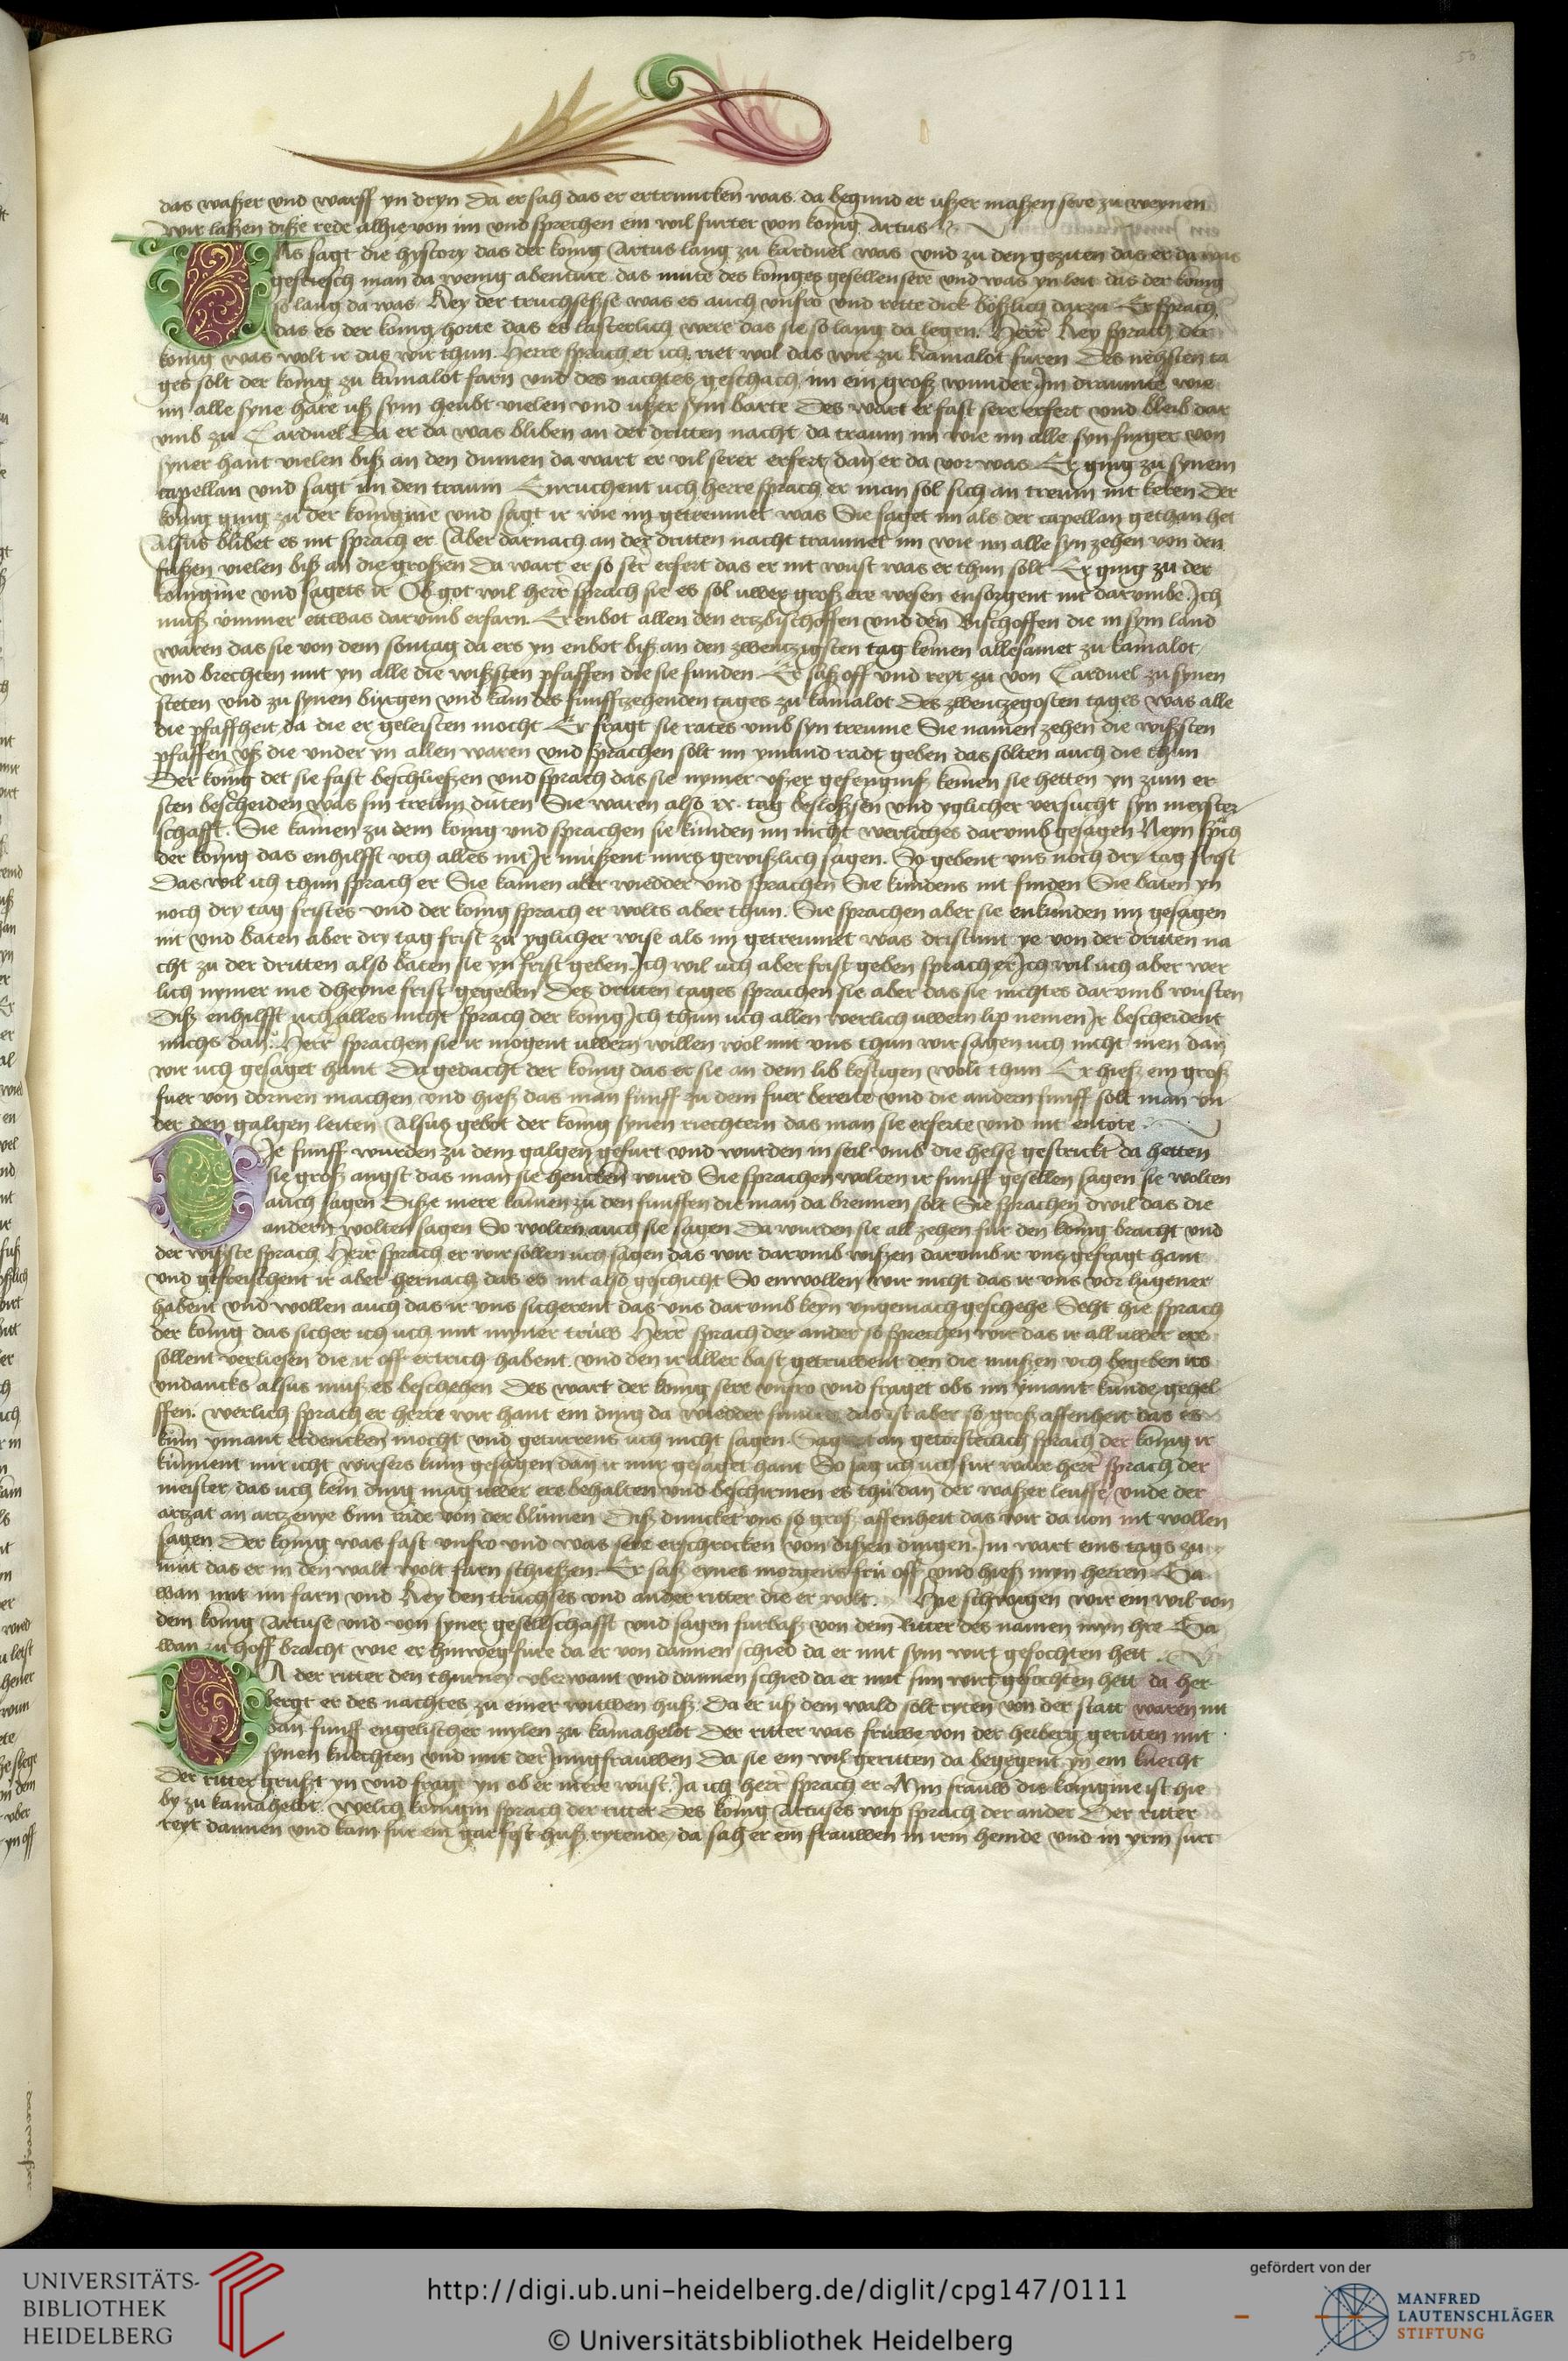 50
das waßer und warff yn dryn Da er sah das er ertruncken was. da begund er ußer maßen sere zu weynen
Wir laßen diße rede alhie von im und sprechen ein wil furter von konig Artus
DAs sagt die hystory das der konig Artus lang zu karduel was und zu den geziten das er da was
gefriesch man da wenig abenture. das mute des koniges gesellen sere und was yn leit das der konig
so lang da was Key der truchseße was es auch unfro und rette dick bößlich darzu Er sprach
das es der konig horte das es lasterlich were das sie so lang da legen. Herre Key sprach der
konig was wolt ir das wir thun. Herre sprach er ich riet wol das wir zu kamalot furen Des nehsten ta
ges solt der konig zu kamalot farn und des nachtes geschach im ein groß wunder Im draumte wie
im alle syne hare uß sym heubt vielen und ußer sym barte Des wart er fast sere erfert und bleib dar
umb zu Carduel Da er da was bliben an der dritten nacht da traum im wie im alle syn finger von
syner hant vielen biß an den dumen da wart er vil serer erfert dan er da vor was Er ging zu synem
capellan und sagt im den traum Enruchent uch herre sprach er man sol sich an treum nit keren Der
konig ging zu der konigine und sagt ir wie im getreumet was Sie saget im als der capellan gethan het
Alsus blibet es nit sprach er Aber darnach an der dritten nacht traumet im wie im alle syn zehen von den
fußen vielen biß an die großen Da wart er so ser erfert das er nit wust was er thun solt Er ging zu der
konigine und sagets ir Ob got wil herre sprach sie es sol uwer groß ere wesen ensorgent nit darumbe Ich
muß ummer ettwas darumb erfarn. Er enbot allen den ertzbischoffen und den Bischoffen die in sym land
waren das sie von dem sontag da ers yn enbot biß an den zwentzigsten tag kemen allesamet zu kamalot
und brechten mit yn alle die wißsten pfaffen die sie funden Er saß off und reyt zu von Carduel zu synen
steten und zu synen burgen und kam des funffzehenden tages zu kamalot Des zwenczegosten tages was alle
die pfaffheit da die er geleisten mocht Er fragt sie rates umb syn treume Sie namen zehen die wißsten
pfaffen uß die under yn allen waren und sprachen solt im ymand radt geben das solten auch die thun
Der konig det sie fast beschließen und sprach das sie nymer ußer gefengniß kemen sie hetten yn zum er
sten bescheiden was sin treum duten Sie waren also ix. tag beslossen und yglicher versucht syn meyster
schafft. Sie kamen zu dem konig und sprachen sie kunden im nicht werliches darumb gesagen Neyn sprach
der konig das enhilfft uch alles nit Ir mußent mirs gewißlich sagen. So gebent uns noch dry tag frist
Das wil ich thun sprach er Sie kamen aber wiedder und sprachen Sie kundens nit finden Sie baten yn
noch dry tag fristes und der konig sprach er wolts aber thun. Sie sprachen aber sie enkunden im gesagen
nit und baten aber dry tag frist zu yglicher wise als im getreumet was dristunt ye von der dritten na
cht zu der dritten also baten sie yn frist geben Ich wil uch aber frist geben sprach er Ich wil uch aber wer
lich nymer me dheyne frist gegeben Des dritten tages sprachen sie aber das sie nichtes darumb wusten
Diß enhilfft uch alles nicht sprach der konig Ich thun uch allen werlich uwern lip nemen Ir bescheident
michs dan. Herre sprachen sie ir mogent uwern willen wol mit uns thun wir sagen uch nicht men dan
wir uch gesaget hant Da gedacht der konig das er sie an dem lib kestigen wolt thun Er hieß ein groß
fuer von dornen machen und hieß das man funff zu dem fuer bereite und die andern funff solt man un
der den galgen leiten Alsus gebot der konig synen riechtern das man sie erferte und nit entote
DIe funff wurden zu dem galgen gefurt und wurden in seil umb die helse gestrickt da hetten
sie groß angst das man sie hencken wurd Sie sprachen wolten ir funff gesellen sagen sie wolten
auch sagen Diße mere kamen zu den funffen die man da brennen solt Sie sprachen dwil das die
andern wolten sagen So wolten auch sie sagen Da wurden sie all zehen fur den konig bracht und
der wißste sprach Herre sprach er wir sollen uch sagen das wir darumb wißen darumb ir uns gefragt hant
und gefreischent ir aber hernach das es nit also geschicht So enwollen wir nicht das ir uns vor lugener
habent und wollen auch das ir uns sicherent das uns darumb keyn ungemach geschehe Seht hie sprach
der konig das sicher ich uch mit myner truw Herre sprach der ander so sprechen wir das ir all uwer ere
sollent verliesen die ir off ertrich habent. und den ir aller bast getruwent den die mußen uch begeben irs
undancks alsus muß es beschehen Des wart der konig sere unfro und fraget obs im ymant kunde gehel
ffen. werlich sprach er herre wir hant ein ding da wiedder funden das ist aber so groß affenheit das es
kum ymant erdencken mocht und geturrens uch nicht sagen. Sagent an getorsteclich sprach der konig ir
kunnent mir icht wirsers kum gesagen dan ir mir gesaget hant So sag ich uch fur ware herre sprach der
meister das uch kein ding mag uwer ere behalten und beschirmen es thu dan der waßer leuffe unde der
arczat an arczenye bnn rade von der blumen Diß duncket uns so groß affenheit das wir da von nit wollen
sagen Der konig was fast unfro und was sere erschrocken von dißen dingen. Im wart eins tags zu
mut das er in den walt wolt farn schießen. Er saß eynes morgens fru off und hieß myn herren Ga
wan mit im farn und Key den truchses und ander ritter die er wolt. Hie schwigen wir ein wil von
dem konig Artuse und von syner gesellschafft und sagen furbaß von dem ritter des namen myn hre Ga
wan zu hoff bracht wie er hinweg fure da er von dannen schied da er mit sym wirt gefochten hett
DA der ritter den thurney uberwant und dannen schied da er mit sim wirt gefochten hett da her
bergt er des nachtes zu einer witwen huß. Da er uß dem wald solt ryten von der statt waren nit
dan funff engelischer mylen zu kamahelot Der ritter was fruwe von der herberg geritten mit
synen knechten und mit der Jungfrauwen Da sie ein wil geritten da begegent yn ein knecht
Der ritter grußt yn und fragt yn ob er mere wust. Ja ich herre sprach er Min frauw die konigine ist hie
by zu kamahelot. welch konigin sprach der ritter Des konig Artuses wip sprach der ander Der ritter
reyt dannen und kam fur ein gar fest huß rytende da sah er ein frauwen in irm hemde und in yrm surc
UNIVERSITÄTS-
BIBLIOTHEK
HEIDELBERG
http://digi.ub.uni-heidelberg.de/diglit/cpg147/0111
© Universitätsbibliothek Heidelberg
gefördert von der
MANFRED
LAUTENSCHLÄGER
STIFTUNG